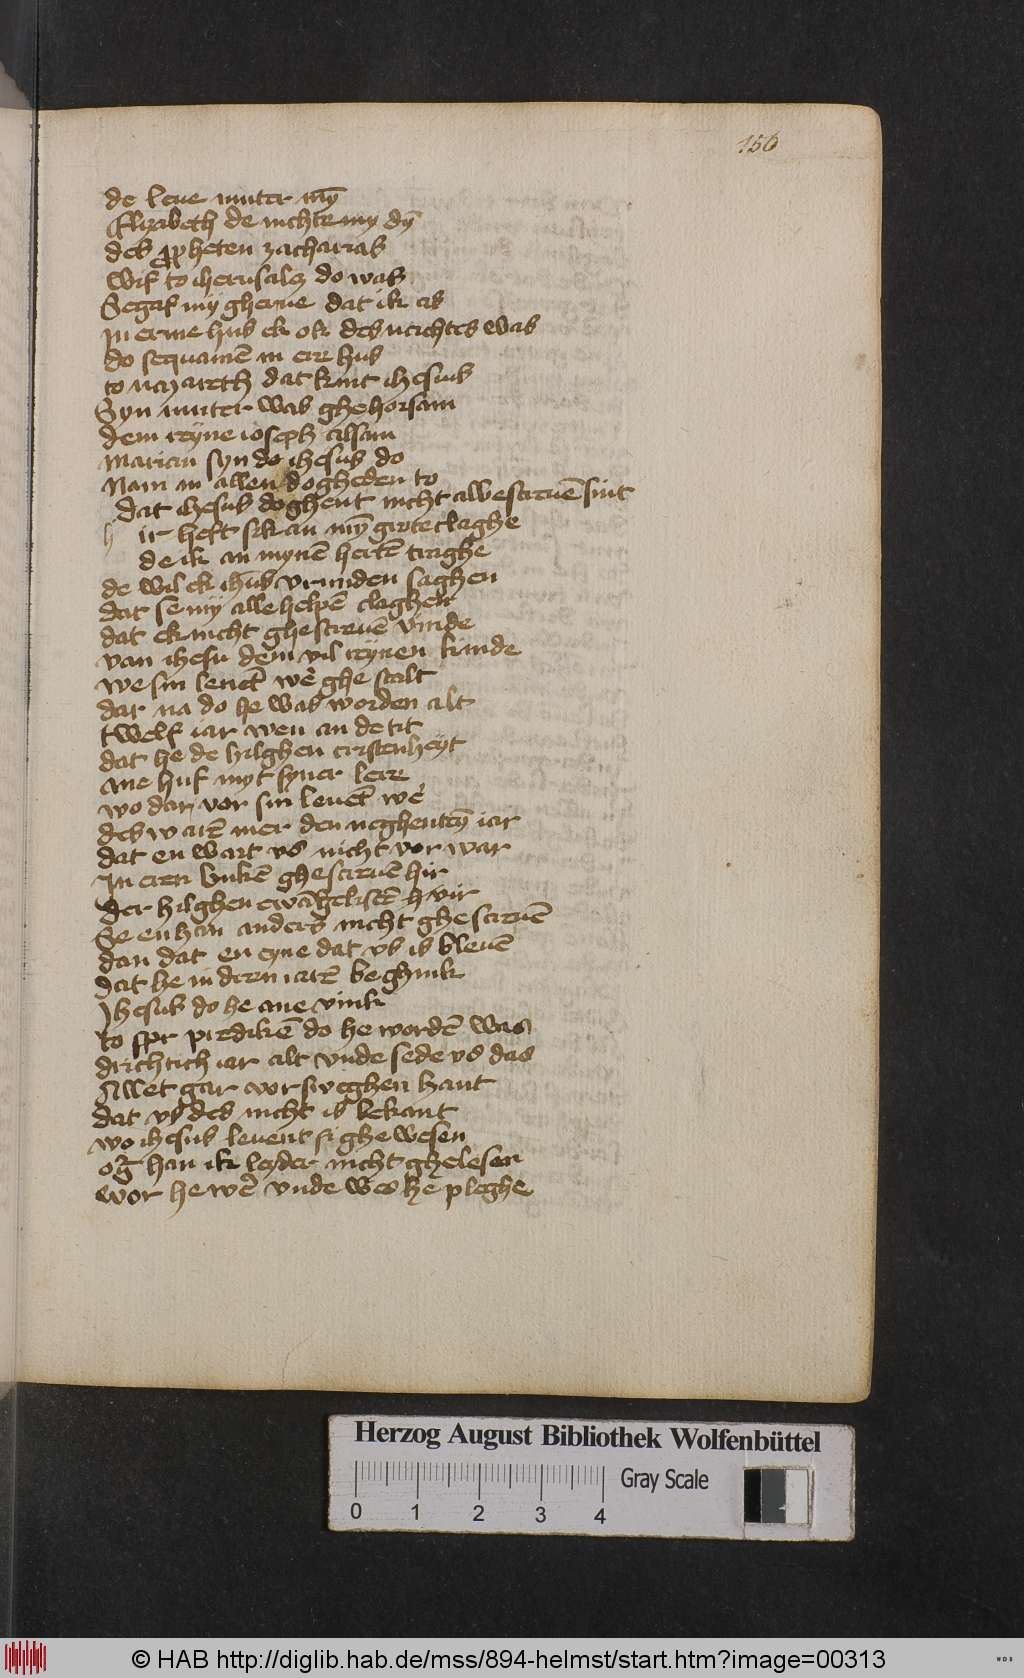 156
de leue muter mȳ
Elizabeth de nichte my dȳ
des ꝓheten zacharias
wif to iherusalē do was
Se gaf my gherne dat ik as
In erme hus ek ok des nichtes was
do se quamē in ere hus
to nazareth dat kint ihesus
Syn muter was ghehorsam
dem reyne ioseph alsam
Marien syn do ihesus do
Nam in allen dogheden to
dat ihesus doghent nicht al bescreuē sint
h ir heft sik an mȳ grote claghe
de ik an mynē hertē traghe
de wil ek ihūs vrunden saghen
dat se my alle helpē claghen
dat ek nicht ghescreuē vinde
van ihesu dem vil reynen kinde
we sin leuēt we ghestalt
dar na do he was worden alt
twelf iar wen an de tit
dat he de hilghen cristenheyt
ane huf myt syner lere
wo dar vor sin leuēt we
des warē mer den neghentey iar
dat en wart vs nicht vor war
In eren bukē ghescreuē hir
der hilghen ewāgelistē vir
Se en han anders nicht ghescreuē
dan dat en eyne dat vs is bleuē
dat he in dren iarē beghink
Ihesus do he ane vink
to predikē do he wordē was
drichtich iar alt vnde sede vs das
Allet gar vorsweghen hant
dat vs des nicht is bekant
wo ihesus leuent si ghewesen
han ik leyder nicht ghelesen
wor he we vnde wes he pleghe
Herzog August Bibliothek Wolfenbüttel
Gray Scale
0 1 2 3 4
© HAB http://diglib.hab.de/mss/894-helmst/start.htm?image=00313
WDB